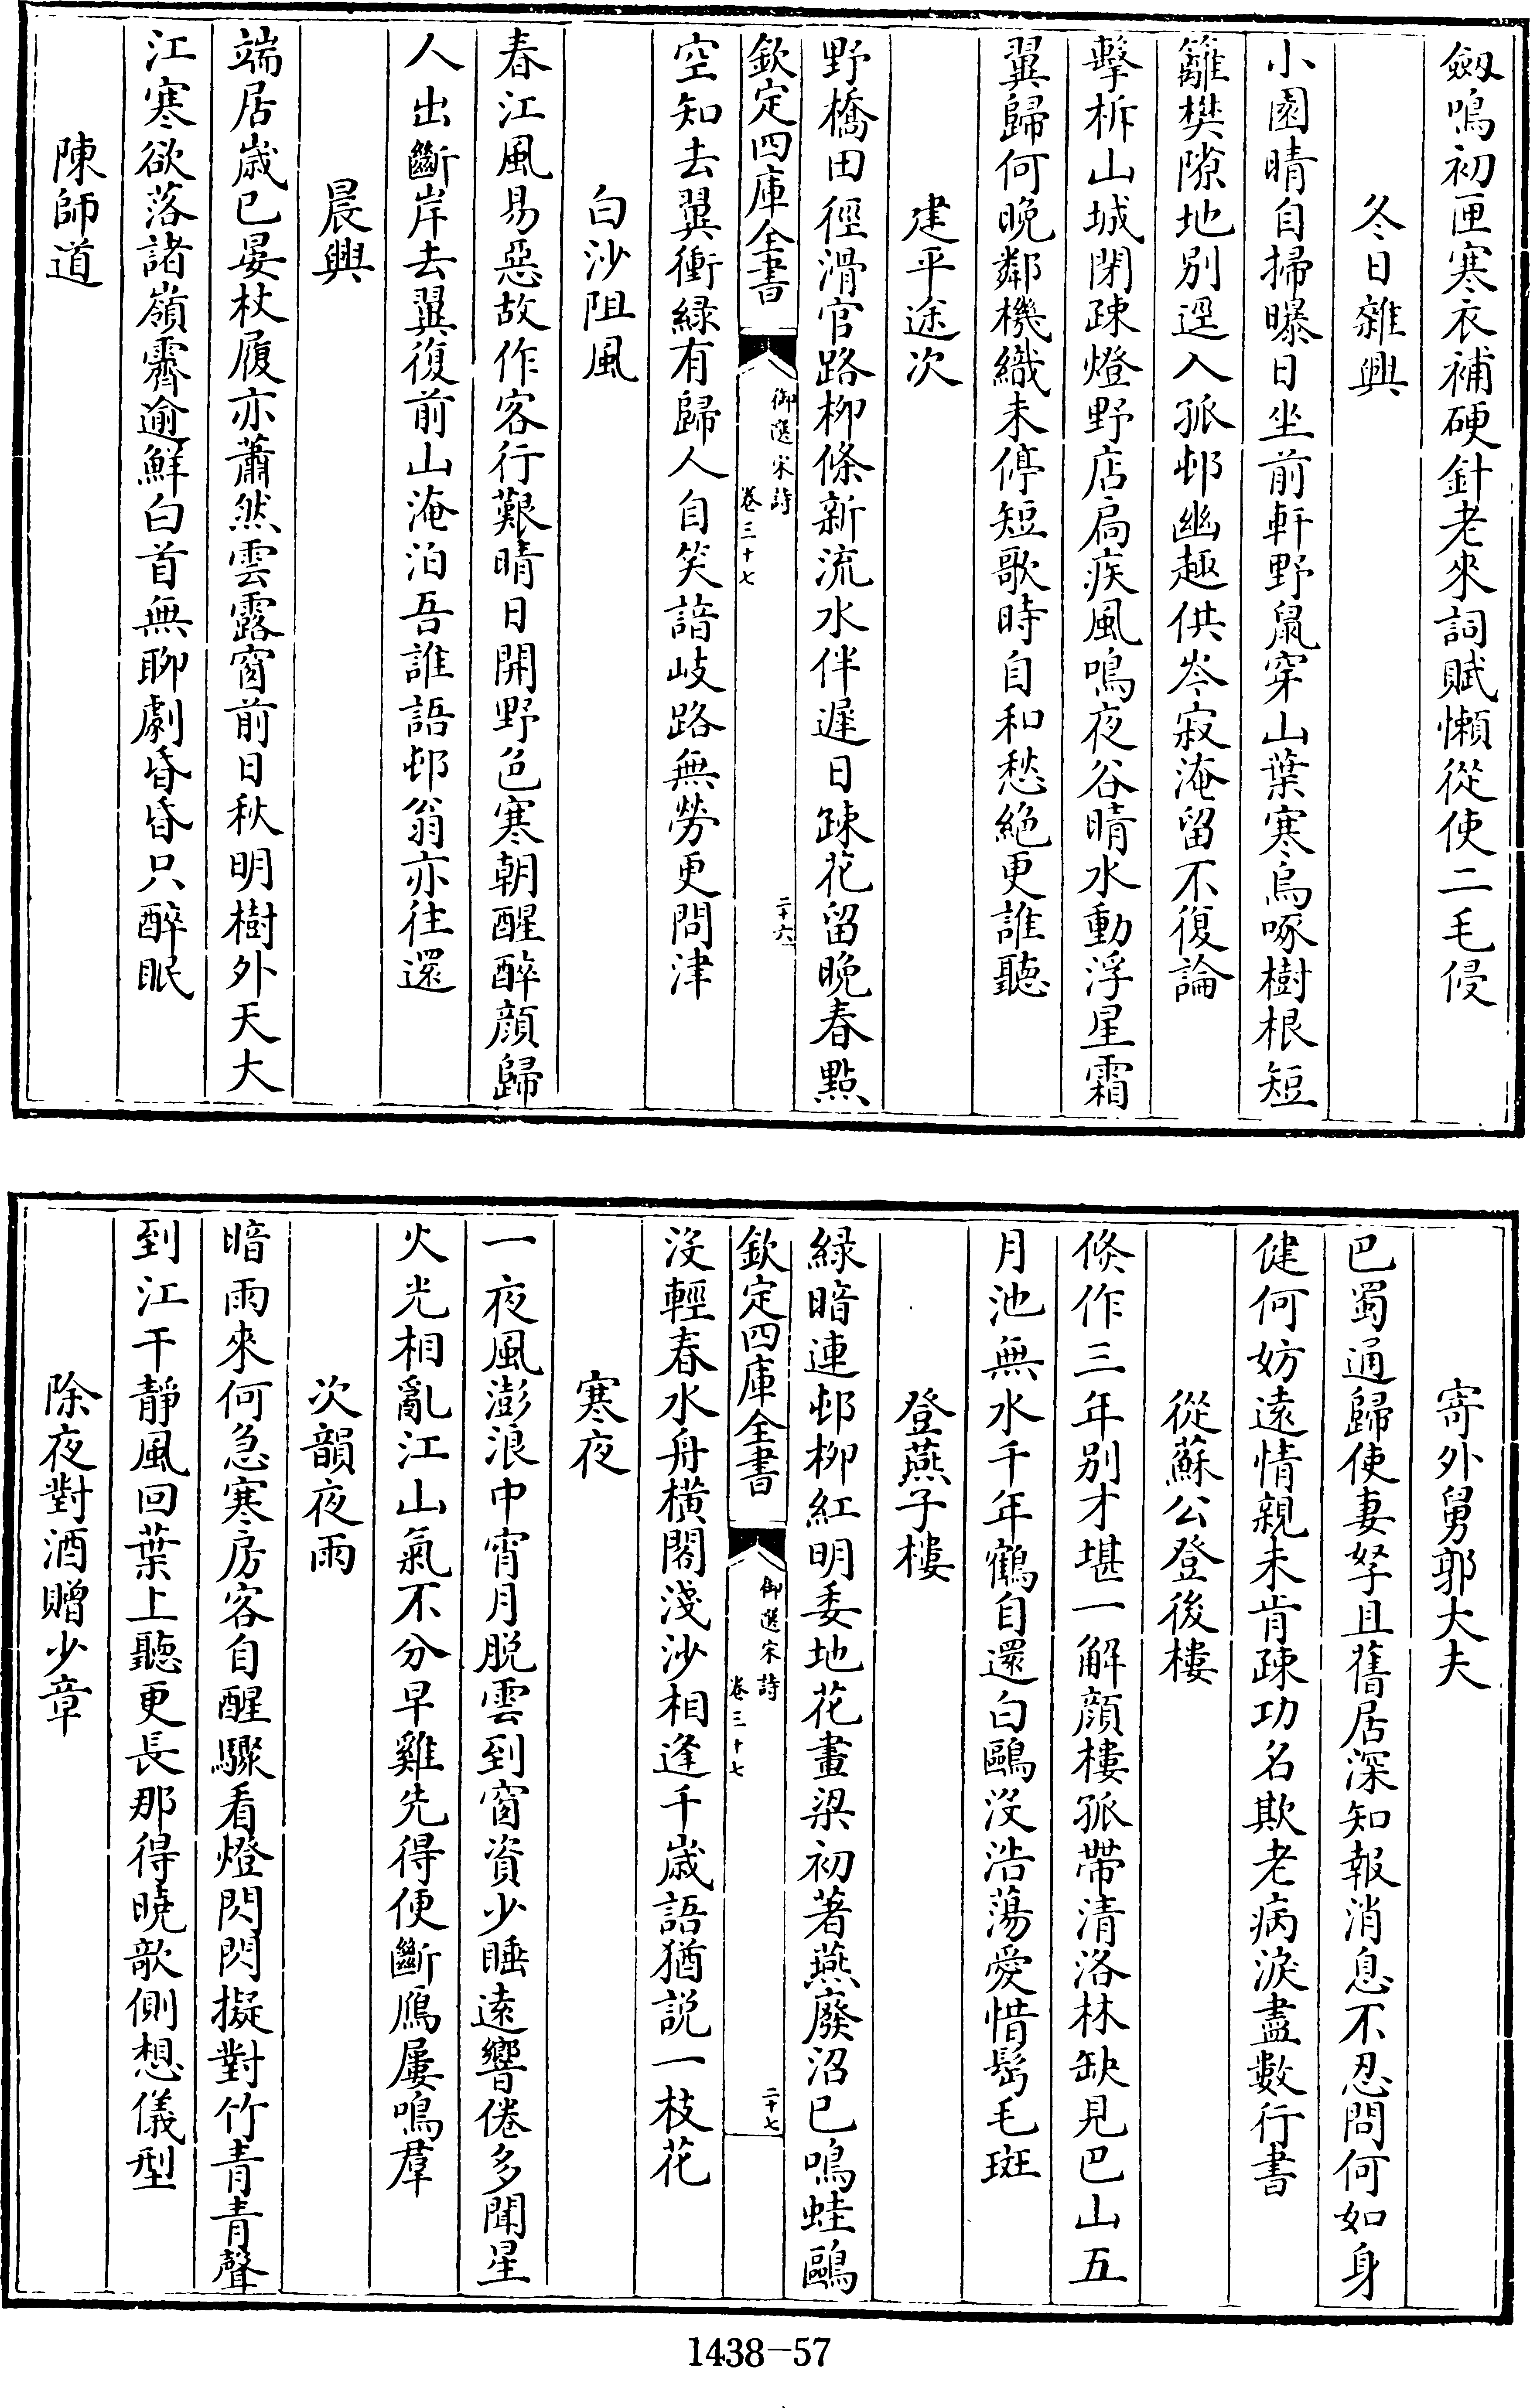 劔鳴初匣寒衣補硬針老來詞賦懶從使二毛侵
冬日雜興
小園晴自掃曝日坐前軒野鼠穿山葉寒烏啄樹根短
籬樊隙地别逕入孤邨幽趣供岑寂淹留不復論
擊柝山城閉疎燈野店扃疾風鳴夜谷晴水動浮星霜
翼歸何晚鄰機織未停短歌時自和愁絶更誰聽
建平途次
野橋田徑滑官路柳條新流水伴遲日疎花留晚春點
欽定四庫全書
御選宋詩
卷三十七
二十六
空知去翼衝緑有歸人自笑諳岐路無勞更問津
白沙阻風
春江風易惡故作客行艱晴日開野色寒朝醒醉顔歸
人出斷岸去翼復前山淹泊吾誰語邨翁亦往還
晨興
端居歲已晏杖履亦蕭然雲露窗前日秋明樹外天大
江寒欲落諸嶺霽逾鮮白首無聊劇昏昏只醉眠
陳師道
寄外舅郭大夫
巴蜀通歸使妻孥且舊居深知報消息不忍問何如身
健何妨遠情親未肯疎功名欺老病淚盡數行書
從蘇公登後樓
倏作三年别才堪一解顔樓孤帶清洛林缺見巴山五
月池無水千年鶴自還白鷗没浩蕩愛惜髩毛斑
登燕子樓
緑暗連邨柳紅明委地花畫梁初著燕廢沼已鳴蛙鷗
欽定四庫全書
御選宋詩
卷三十七
二十七
没輕春水舟橫閣淺沙相逢千歲語猶説一枝花
寒夜
一夜風澎浪中宵月脱雲到窗資少睡遠響倦多聞星
火光相亂江山氣不分早雞先得便斷鴈屢鳴羣
次韻夜雨
暗雨來何急寒房客自醒驟看燈閃閃擬對竹青青聲
到江干靜風回葉上聽更長那得曉欹側想儀型
除夜對酒贈少章
1438-57